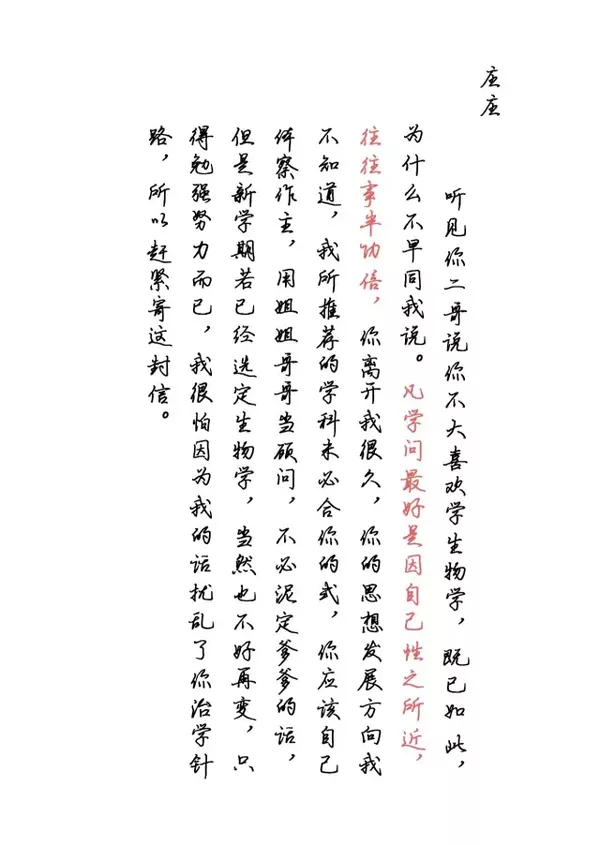 庄庄
听见你二哥说你不大喜欢学生物学，既已如此，
为什么不早同我说。凡学问最好是因自己性之所近，
往往事半功倍，你离开我很久，你的思想发展方向我
不知道，我所推荐的学科未必合你的式，你应该自己
体察作主，用姐姐哥哥当顾问，不必泥定爹爹的话，
但是新学期若已经选定生物学，当然也不好再变，只
得勉强努力而已，我很怕因为我的话扰乱了你治学针
路，所以赶紧寄这封信。